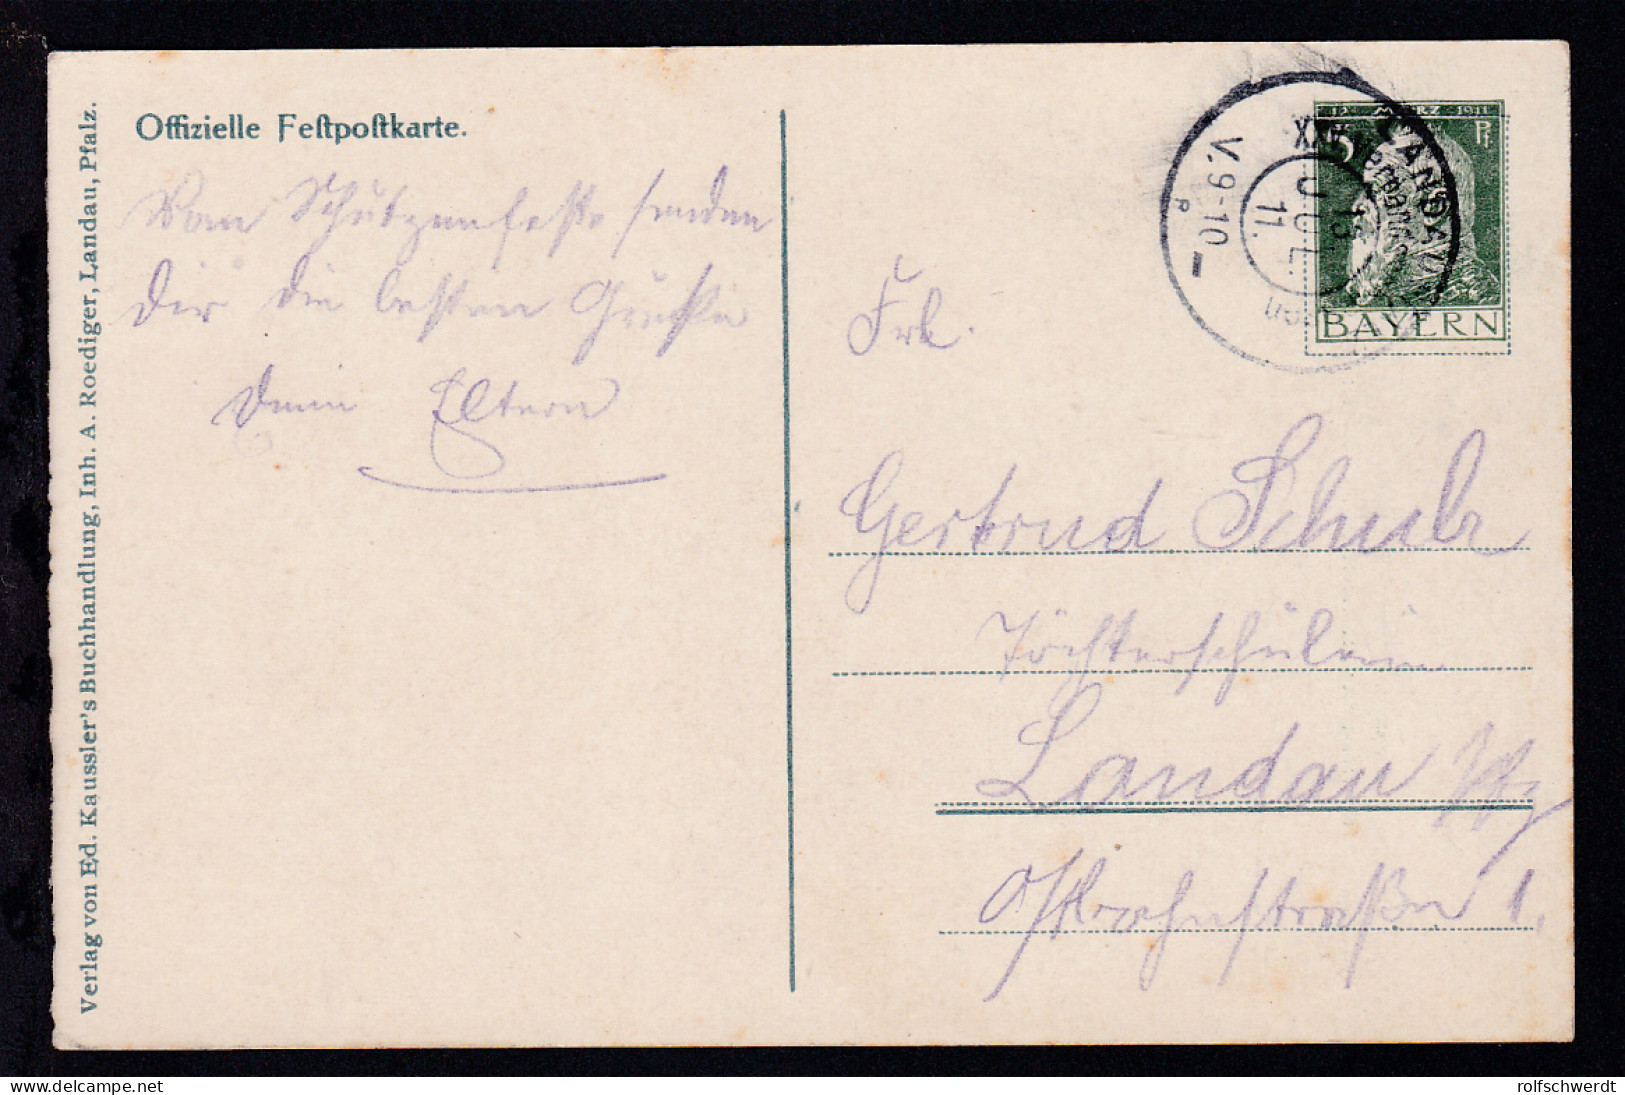 Offizielle Festpostkarte.
Vom Schützenfeste senden
Dir die besten Grüße
Deine Eltern
Verlag von Ed. Kaussler's Buchhandlung, Inh. A. Roediger, Landau, Pfalz.
12. MÄRZ 1911
5 Pf
BAYERN
LANDAU
XXV. Verbands
15
JUL.
11.
V.9-10
Frl.
Gertrud Schulz
Töchterschülerin
Landau Pfz
Ostbahnstraße 1.
delcampe.net
rolfschwerdt